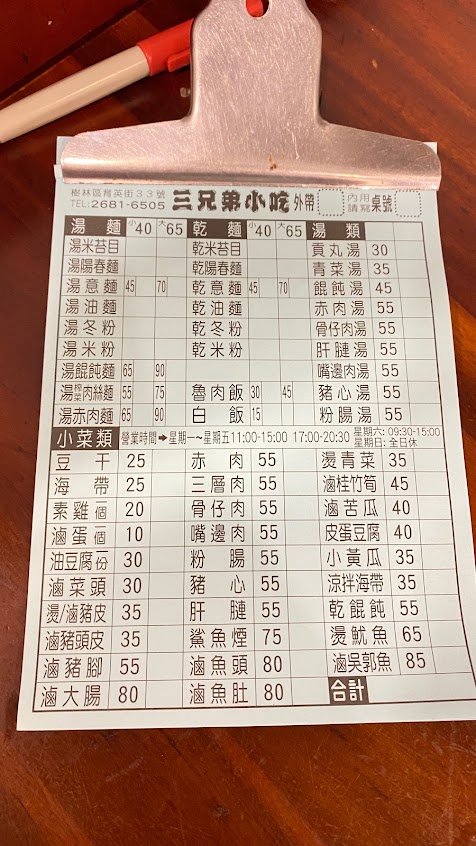 樹林區育英街33號 三兄弟小吃 外帶 內用 桌號
TEL:2681-6505 請寫
湯麵 小40 大65 乾麵 小40 大65 湯類
湯米苔目 乾米苔目 貢丸湯 30
湯陽春麵 乾陽春麵 青菜湯 35
湯意麵 45 70 乾意麵 45 70 餛飩湯 45
湯油麵 乾油麵 赤肉湯 55
湯冬粉 乾冬粉 骨仔肉湯 55
湯米粉 乾米粉 肝膧湯 55
湯餛飩麵 65 90 嘴邊肉湯
湯榨菜肉絲麵 55 75 魯肉飯 30 45 豬心湯 55
湯赤肉麵 65 90 白飯 15 粉腸湯 55
小菜類 營業時間➡星期一~星期五11:00-15:00 17:00-20:30 星期六: 09:30-15:00
星期日: 全日休
豆干 25 赤肉 55 燙青菜 35
海帶 25 三層肉 55 滷桂竹筍 45
素雞一個 20 骨仔肉 55 滷苦瓜 40
滷蛋一個 10 嘴邊肉 55 皮蛋豆腐 40
油豆腐一份 30 粉腸 55 小黃瓜 35
滷菜頭 30 豬心 55 涼拌海帶 35
燙/滷豬皮 35 肝膧 55 乾餛飩 55
滷豬頭皮 35 鯊魚煙 75 燙魷魚 65
滷豬腳 55 滷魚頭 80 滷吳郭魚 85
滷大腸 80 滷魚肚 80 合計